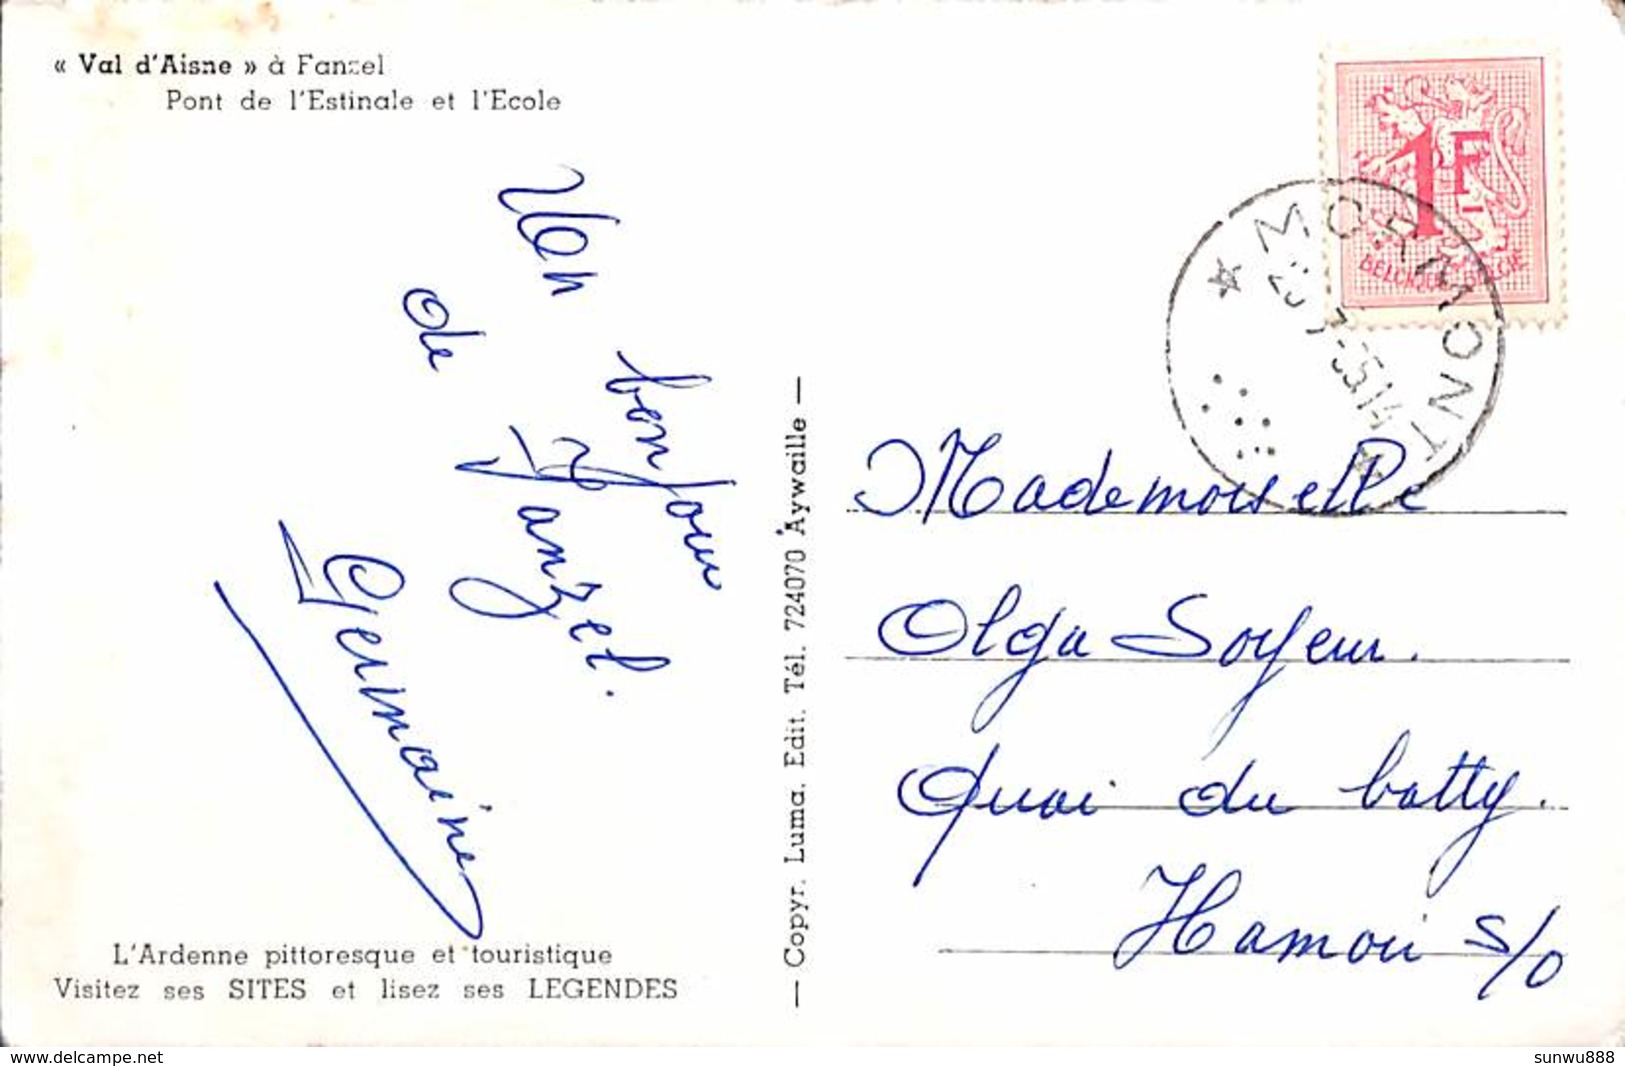 « Val d'Aisne » à Fanzel
Pont de l'Estinale et l'Ecole
Un bonjour
de Fanzel.
Germaine
L'Ardenne pittoresque et touristique
Visitez ses SITES et lisez ses LEGENDES
— Copyr. Luma. Edit. Tél. 724070 Aywaille —
1F
BELGIQUE-BELGIË
* MORMONT *
Mademoiselle
Olga Soyeur.
Quai du batty.
Hamoir s/O
www.delcampe.net
sunwu888